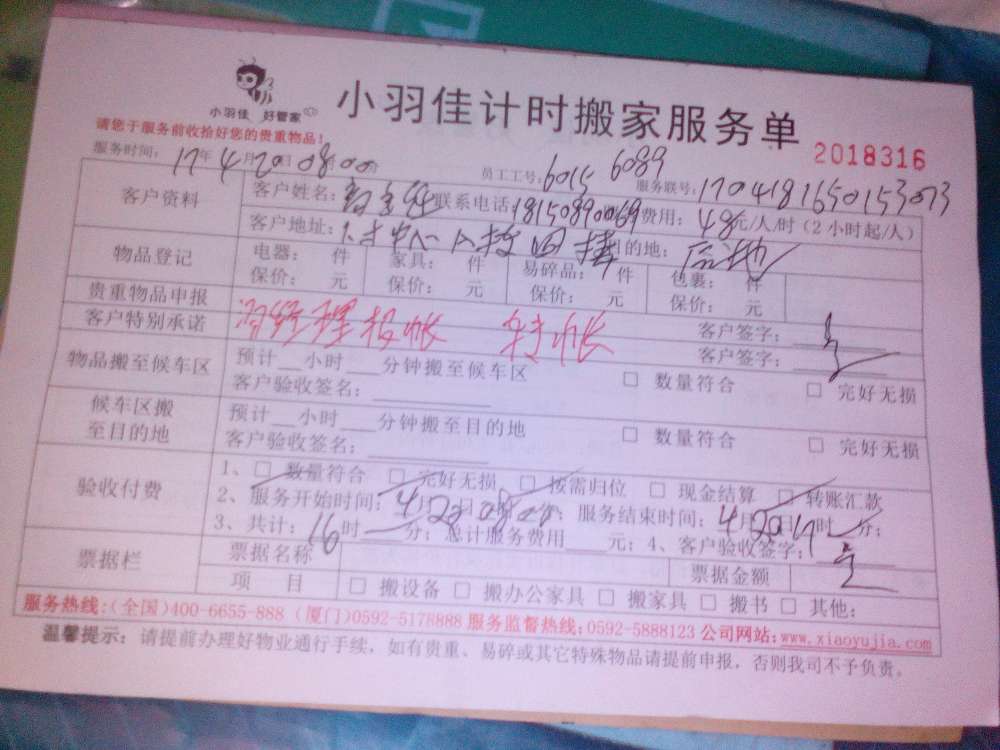 小羽佳 好管家
小羽佳计时搬家服务单
请您于服务前收拾好您的贵重物品！
2018316
服务时间：17年4月20日08:00 员工工号：6015 6089 服务联号：1704181650153073
客户资料 客户姓名： 联系电话：18150890069 费用：48元/人/时（2小时起/人）
客户地址： 目的地：
物品登记 电器： 件 家具： 件 易碎品： 件 包裹： 件
保价： 元 保价： 元 保价： 元 保价： 元
贵重物品申报 客户签字：
客户特别承诺 经理报帐 转帐 客户签字：
物品搬至候车区 预计__小时___分钟搬至候车区 □ 数量符合 □ 完好无损
客户验收签名：
候车区搬至目的地 预计__小时___分钟搬至目的地 □ 数量符合 □ 完好无损
客户验收签名：
验收付费 1、□ 数量符合 □ 完好无损 □ 按需归位 □ 现金结算 □ 转账汇款
2、服务开始时间：4月20日08时 分；服务结束时间：4月20日17时 分；
3、共计：16时 分；总计服务费用 元；4、客户验收签字：
票据栏 票据名称 票据金额
项 目 □ 搬设备 □ 搬办公家具 □ 搬家具 □ 搬书 □ 其他：
服务热线：（全国）400-6655-888（厦门）0592-5178888 服务监督热线：0592-5888123 公司网站：www.xiaoyujia.com
温馨提示：请提前办理好物业通行手续，如有贵重、易碎或其它特殊物品请提前申报，否则我司不予负责。